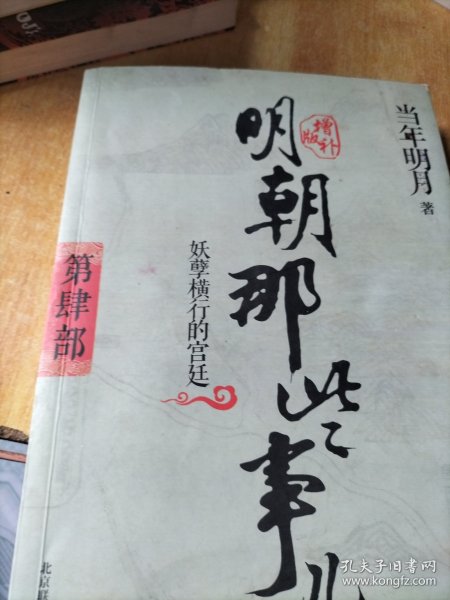 当年明月 著
明朝那些事儿
增补版
妖孽横行的宫廷
第肆部
北京联
孔夫子旧书网